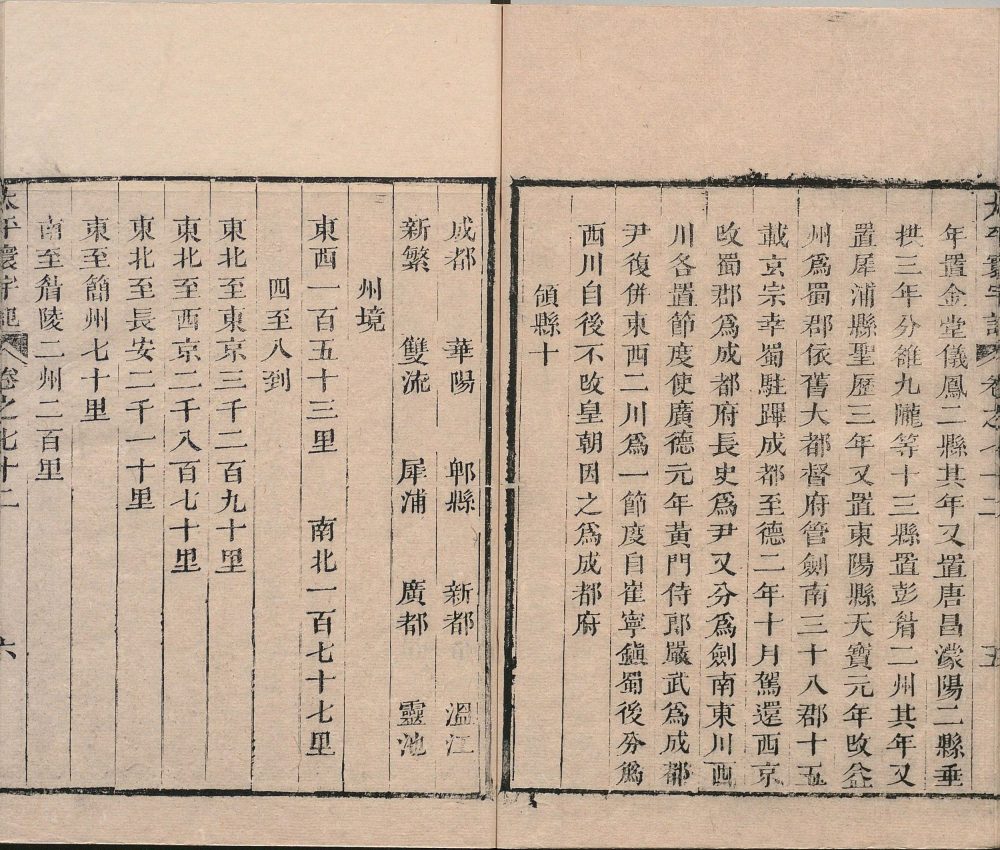 太平寰宇記 卷之七十二 五
年置金堂儀鳳二縣其年又置唐昌濛陽二縣垂
拱三年分雒九隴等十三縣置彭眉二州其年又
置犀浦縣聖歷三年又置東陽縣天寶元年改益
州爲蜀郡依舊大都督府管劍南三十八郡十五
載京宗幸蜀駐蹕成都至德二年十月駕還西京
改蜀郡爲成都府長史爲尹又分爲劍南東川西
川各置節度使廣德元年黃門侍郎嚴武爲成都
尹復併東西二川爲一節度自崔寧鎭蜀後分爲
西川自後不改皇朝因之爲成都府
領縣十
成都 華陽 郫縣 新都 溫江
新繁 雙流 犀浦 廣都 靈池
州境
東西一百五十三里 南北一百七十七里
四至八到
東北至東京三千二百九十里
東北至西京二千八百七十里
東北至長安二千一十里
東至簡州七十里
南至眉陵二州二百里
太平寰宇記 卷之七十二 六